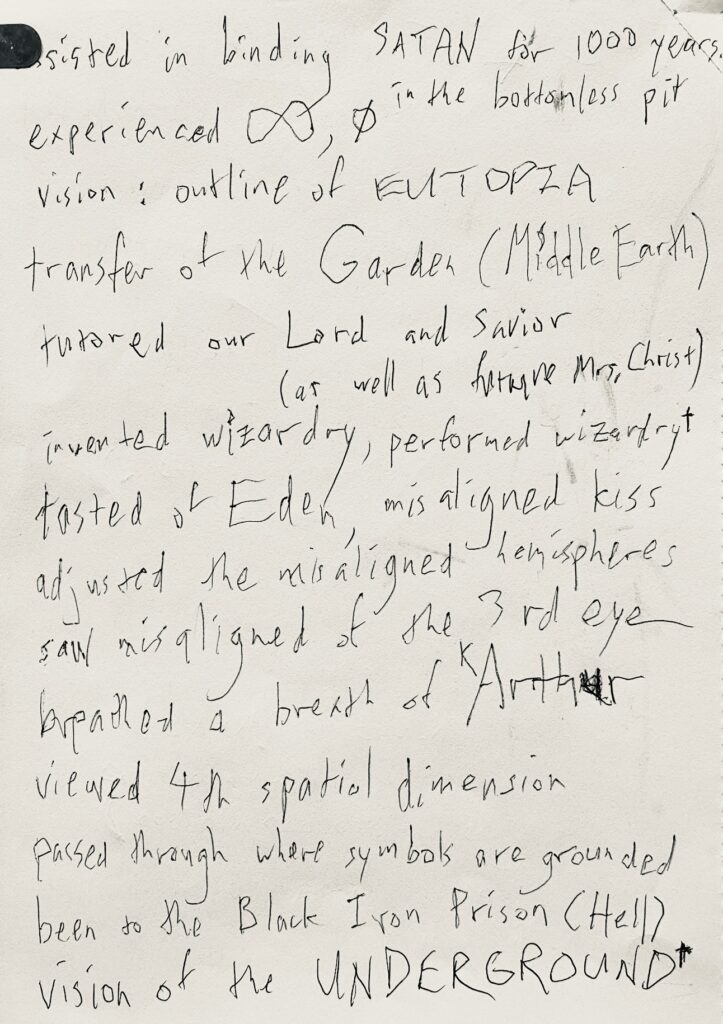 ssisted in binding SATAN for 1000 years.
experienced ∞, ∅ in the bottomless pit
vision : outline of EUTOPIA
transfer of the Garden (Middle Earth)
tutored our Lord and Savior
(as well as future Mrs. Christ)
invented wizardry, performed wizardry†
tasted of Eden, misaligned kiss
adjusted the misaligned hemispheres
saw misaligned of the 3rd eye
breathed a breath of K Arthur
viewed 4th spatial dimension
passed through where symbols are grounded
been to the Black Iron Prison (Hell)
vision of the UNDERGROUND†